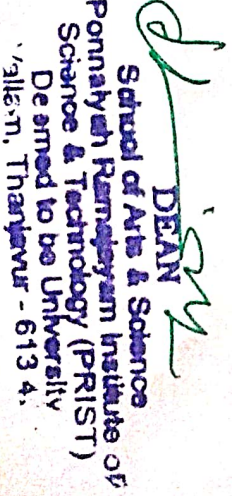 DEAN
School of Arts & Science
Ponnaiyah Ramajayam Institute of
Science & Technology (PRIST)
Deemed to be University
Vallam, Thanjavur - 613 4